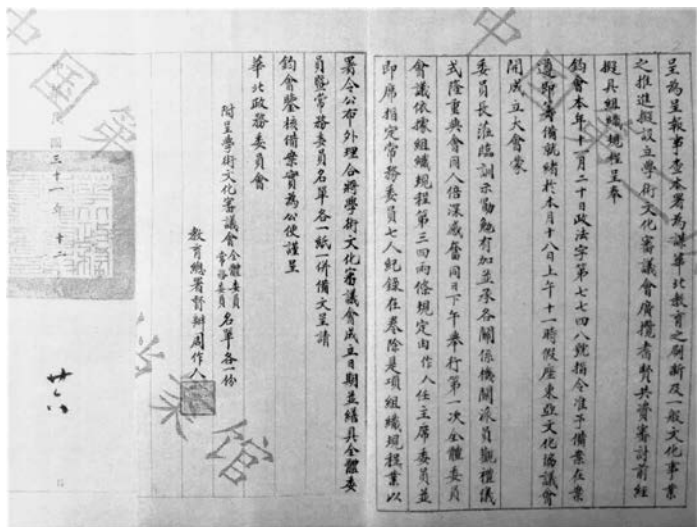 呈為呈報事查本署為謀華北教育之刷新及一般文化事業
之推進擬設立學術文化審議會廣攬耆賢共資審討前經
擬具組織規程呈奉
鈞會本年十一月二十日政法字第七七四八號指令准予備案在案
遵即籌備就緒於本月十八日上午十一時假座東亞文化協議會
開成立大會蒙
委員長蒞臨訓示勗勉有加並承各關係機關派員觀禮儀
式隆重與會同人倍深感奮同日下午舉行第一次全體委員
會議依據組織規程第三四兩條規定由作人任主席委員並
即席指定常務委員七人紀錄在卷除是項組織規程業以
署令公布外理合將學術文化審議會成立日期並繕具全體委
員暨常務委員名單各一紙一併備文呈請
鈞會鑒核備案實為公便謹呈
華北政務委員會
附呈學術文化審議會全體委員常務委員名單各一份
教育總署督辦周作人
中華民國三十一年十二月
廿六
日
中国第二历史档案馆